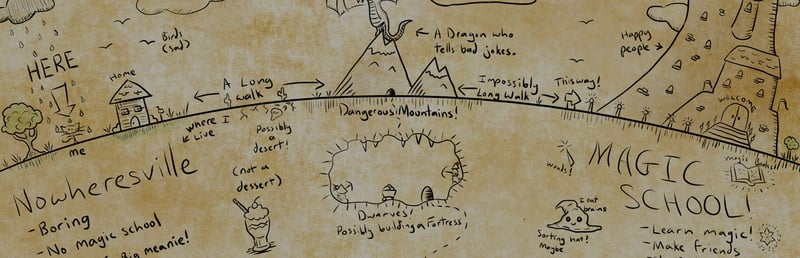 Birds
(sad)
HERE
Me
Home
A Long
walk
A Dragon who
tells bad jokes.
Happy
people
Impossibly
Long Walk
This way!
Welcome
Where I
Live
Possibly
a
desert!
(not a
dessert)
Dangerous Mountains!
Dwarves!
Possibly building a Fortress!
Nowheresville
- Boring
- No magic school
Big meanie!
Wands!
I eat
brains
Sorting hat!
Maybe
MAGIC
SCHOOL!
Magic Books!
- Learn magic!
- Make friends